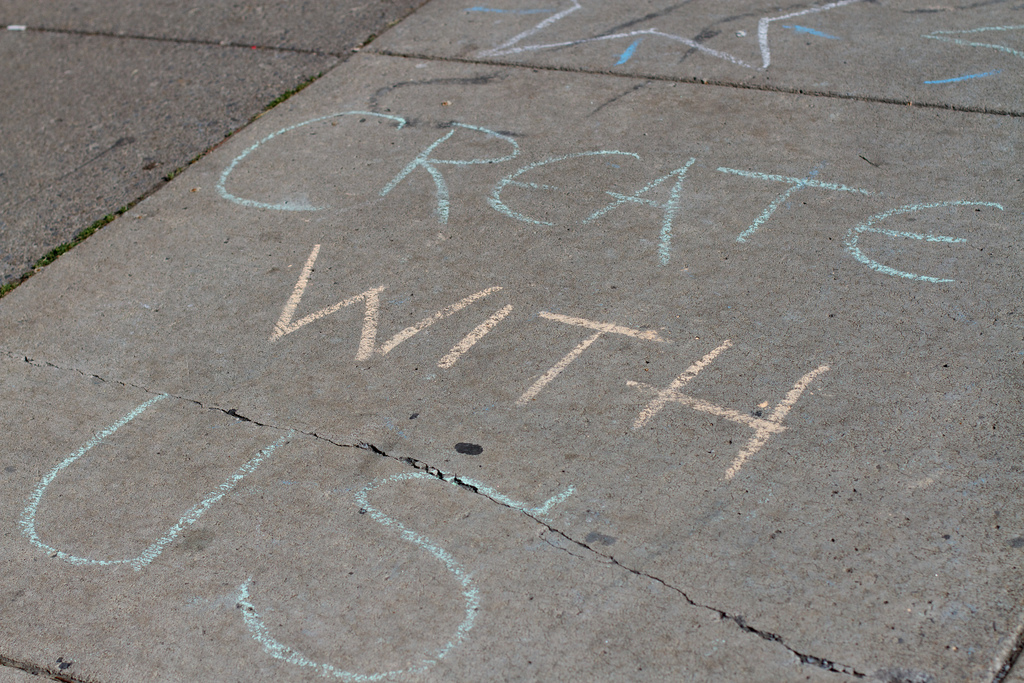 CREATE
WITH
US